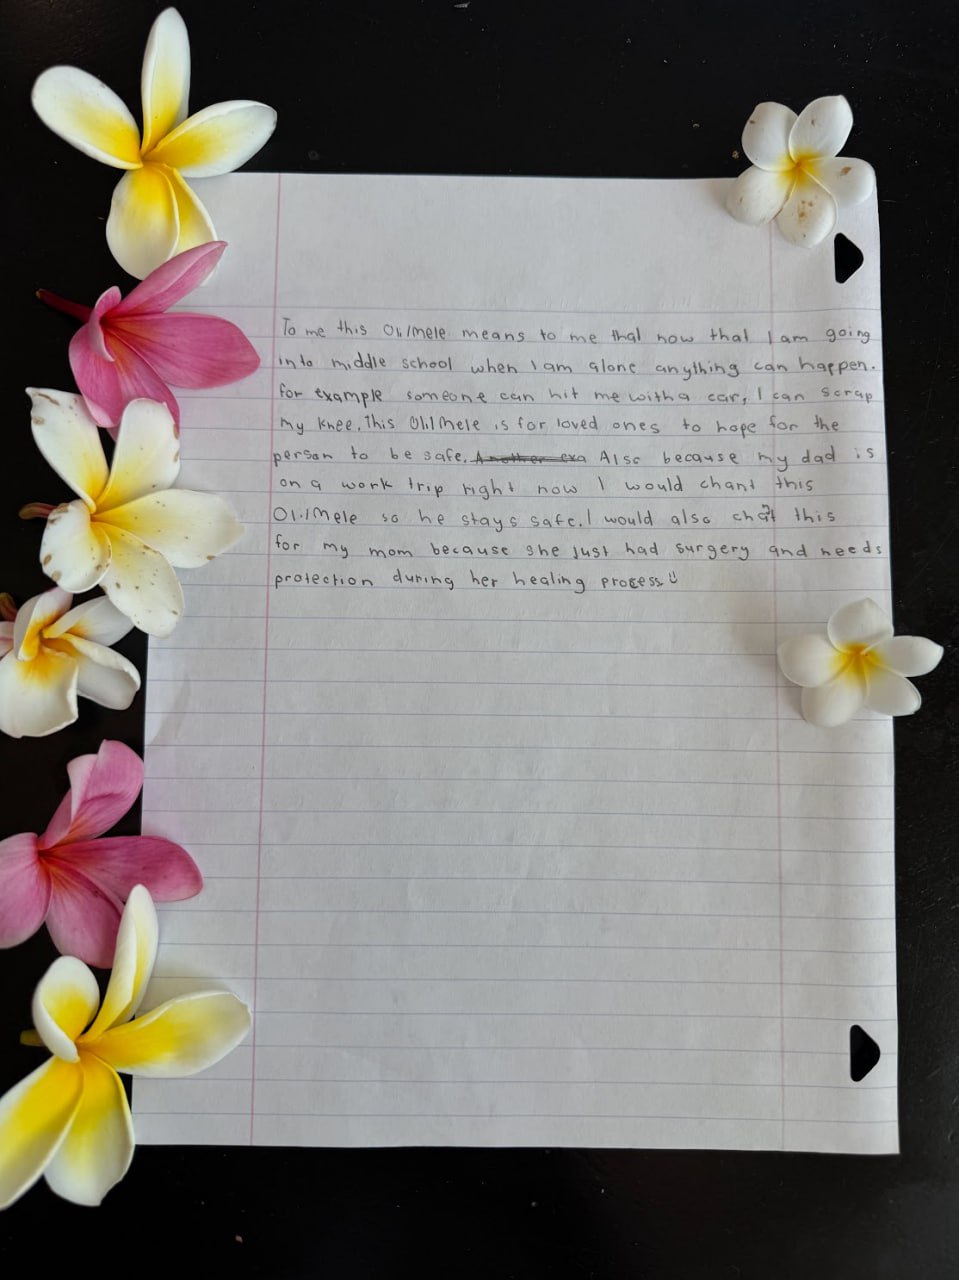 To me this Oli/Mele means to me that now that I am going
into middle school when I am alone anything can happen.
for example someone can hit me with a car, I can scrap
my knee. This Oli/Mele is for loved ones to hope for the
person to be safe. Another exa Also because my dad is
on a work trip right now I would chant this
Oli/Mele so he stays safe. I would also chat this
for my mom because she just had surgery and needs
protection during her healing process. U